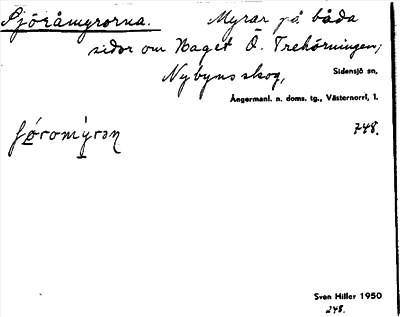 Sjöråmyrorna. Myrar på båda
sidor om Vaget Ö. Trehörningen,
Nybyns skog,
Sidensjö sn,
Ångermanl. n. doms. tg., Västernorrl. l.
748.
Sven Hiller 1950
248.